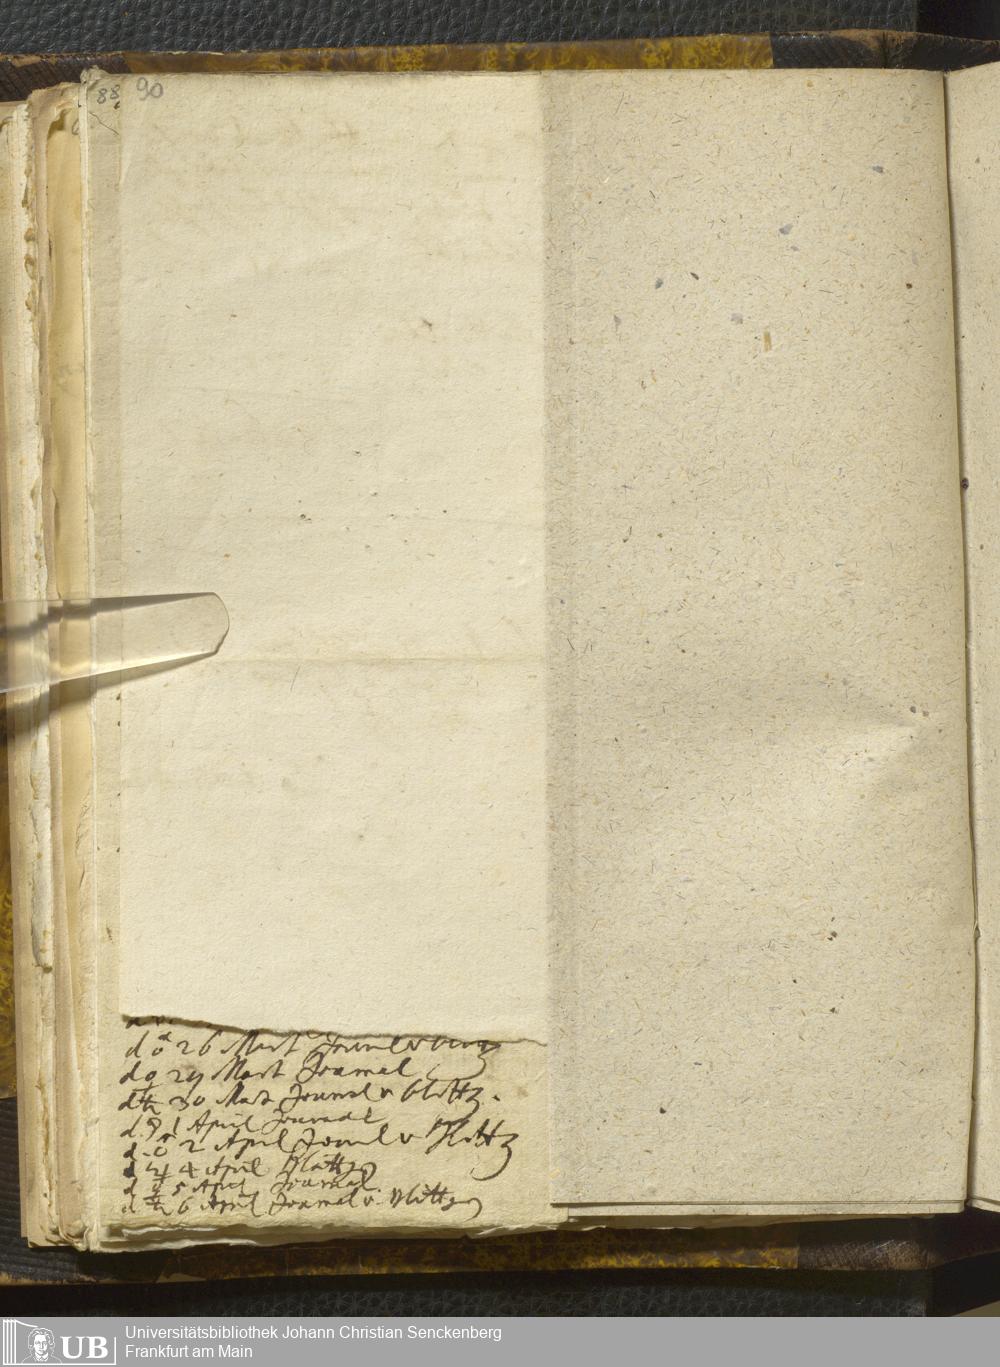 88 90
d ♂ 26 Mart Journal v
d ♀ 29 Mart Journal
d ♄ 30 Mart Journal v Blättg.
d. ☽ 1 April Journal
d. ♂ 2 April Journal v Blättg
d ♃ 4 April Blättg
d ♀ 5 April Journal
d ♄ 6 April Journal v. Blättg
UB Universitätsbibliothek Johann Christian Senckenberg
Frankfurt am Main